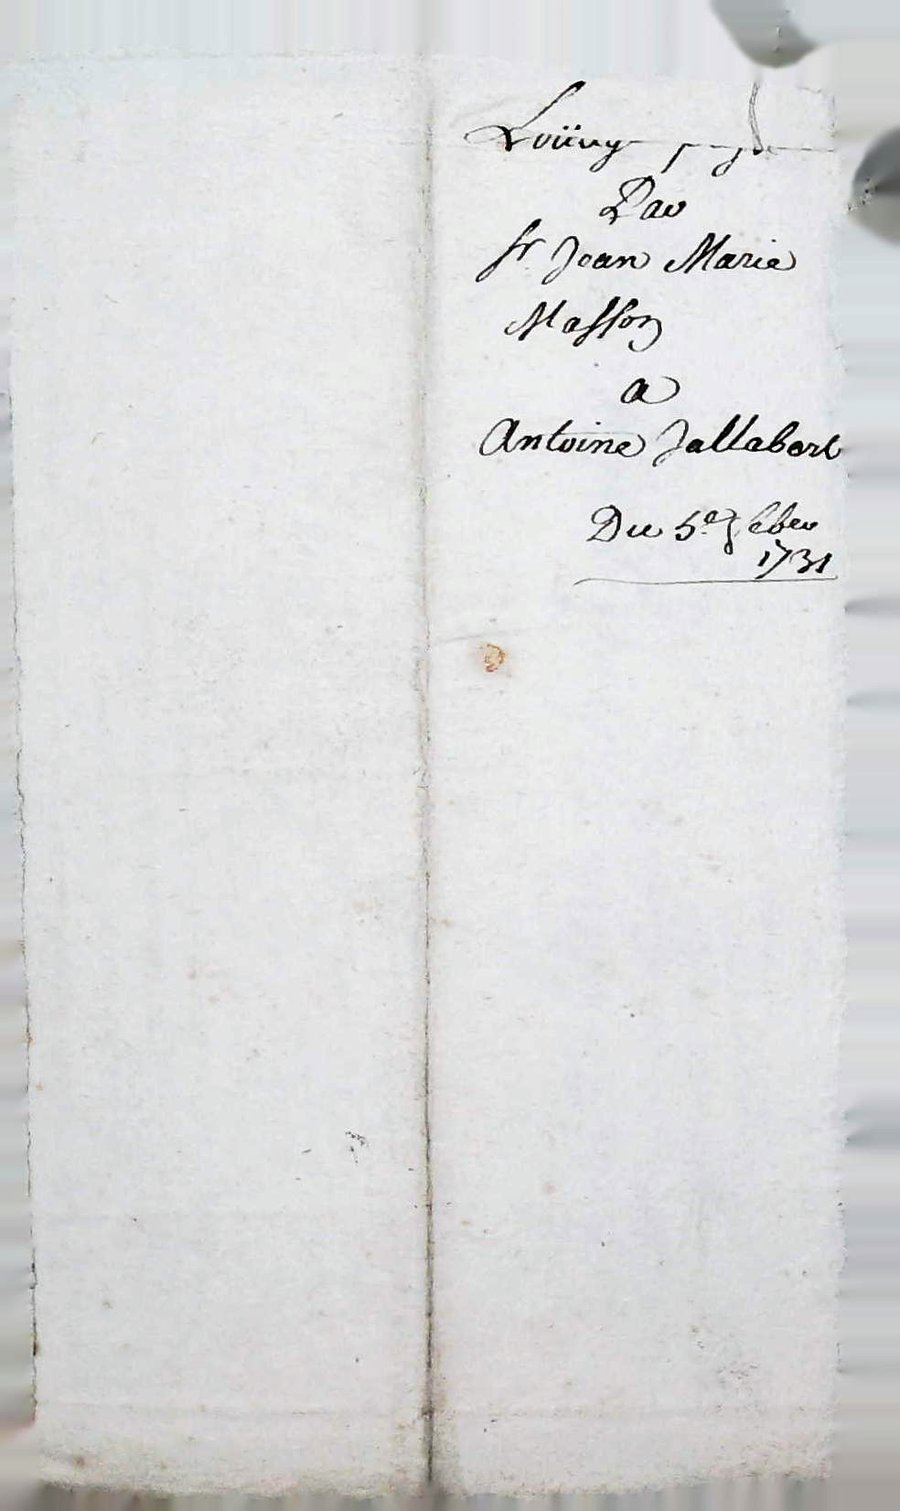 Loüage
Par
Sr Jean Marie
Masson
a
Antoine Jallabert
Du 5e
1731